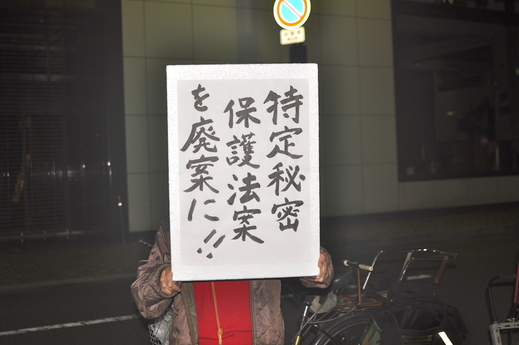 特定秘密
保護法案
を廃案に!!